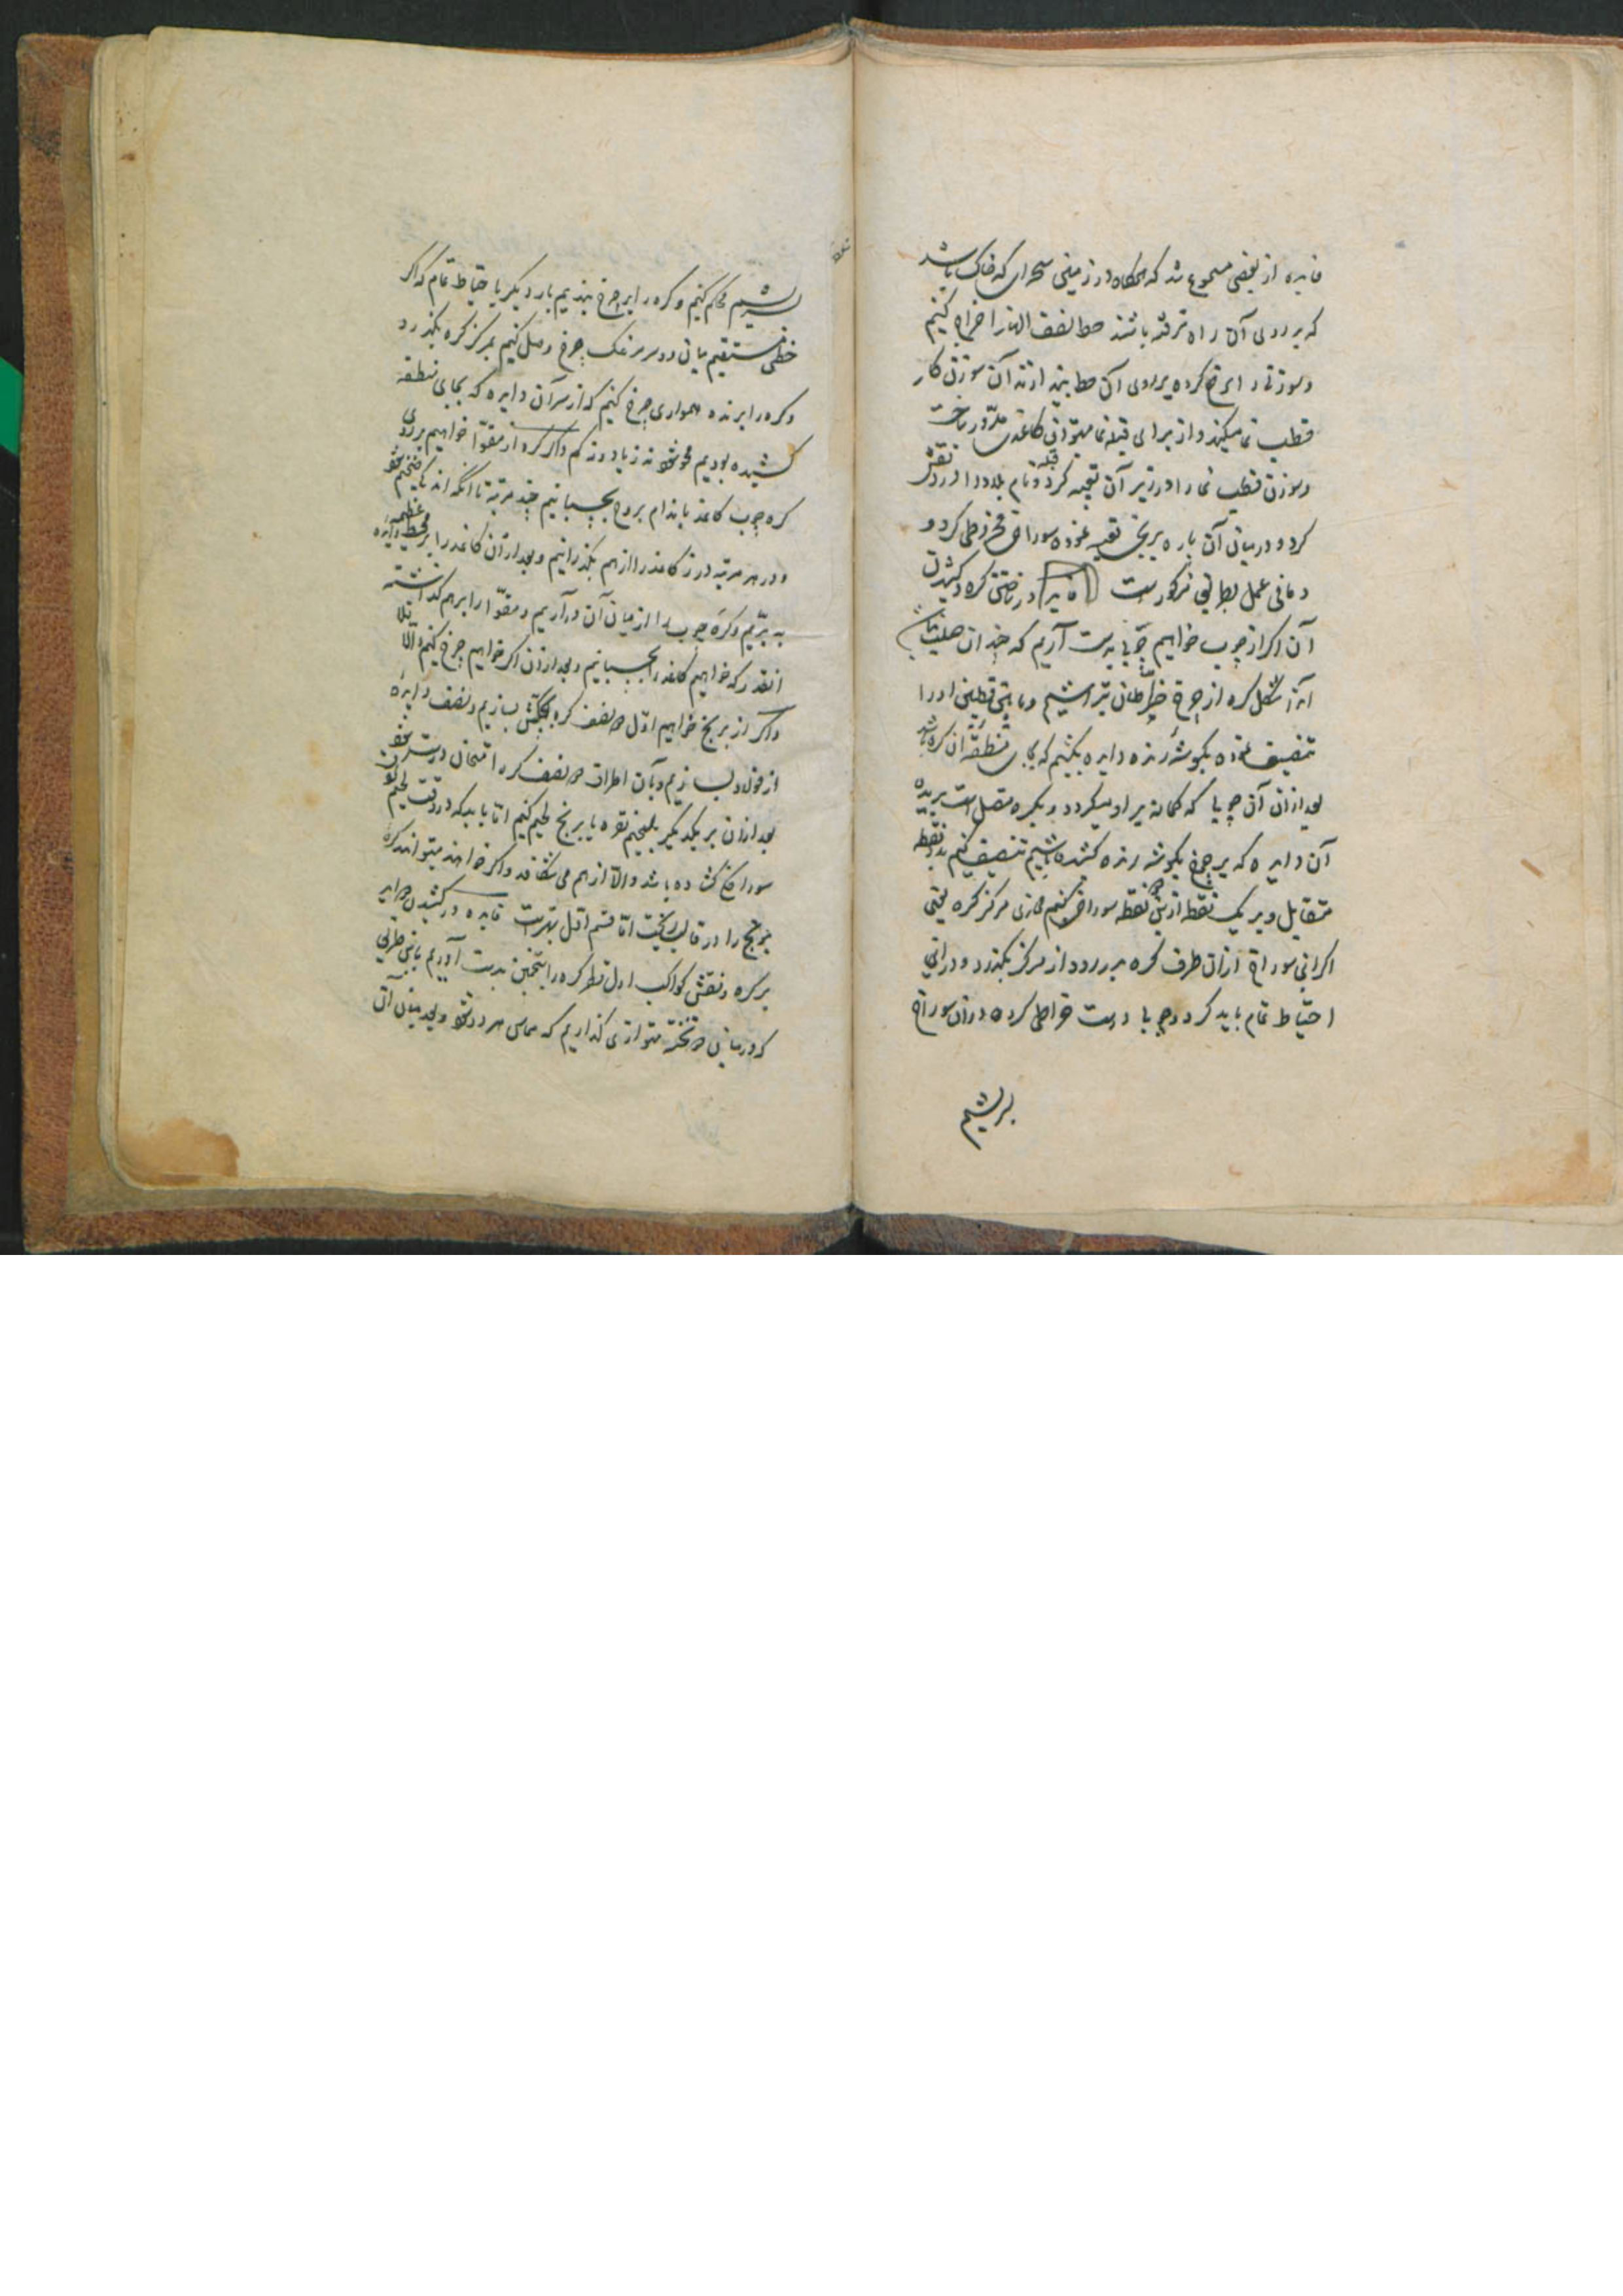 فایده از بعضی مسموع شد که هرگاه در زمینی سحرای که خاک باشد
که بر روی آن راه نرفته باشند خط نصف النهار اخراج کنیم
و سوزنی را کرده بر روی آن خط بیندازند آن سوزن کار
قطب نما میکند و از برای قبله نما میتوان کاغذی مدور ساخت
و سوزن قطب نما را در زیر آن تعبیه کرد و نام بلاد را در دور نقش
کرد و در میان آن پاره برنجی تعبیه نموده سوراخ مخروطی کرد و
و مافی عمل بطریق مذکورست فایده در ساختن کره و کشیدن
آن اگر از چوب خواهیم چوبی بدست آریم که چندان صلب نباشد
آنرا بشکل کره از چرخ خراطان بتراشیم و مابین قطبین او را
تنصیف نموده بگوشه رنده دایره بکشیم که بجای منطقه آن کره باشد
بعد از آن آن چوب را که کمانه بر او میگردد و بکره متصل است بریده
آن دایره که بر چرخ بگوشه رنده کشیده باشیم تنصیف کنیم بدو نقطه
متقابل و بر یک نقطه ازین دو نقطه سوراخ کنیم محاذی مرکز کره یعنی
اگر این سوراخ از آن طرف کره بدر رود از مرکز بگذرد و در این
احتیاط تمام باید کرد و چوب را درست خراطی کرده در آن سوراخ
بریشیم
بریشیم محکم کنیم و کره را بر چرخ بندیم بار دیگر با احتیاط تمام که اگر
خطی مستقیم میان دو سر مرغک چرخ وصل کنیم بمرکز کره بگذرد
و کره را برنده همواری چرخ کنیم که از سر آن دایره که بجای منطقه
کشیده بودیم محو شود نه زیاد و نه کم و اگر کره از مقوا خواهیم بر روی
کره چوب کاغذ باندام بروی بچسبانیم چند مرتبه تا آنکه اندک ضخیم شود
و در هر مرتبه درز کاغذ را از هم بگذرانیم و بعد از آن کاغذ را بر محیط دایره عظیمه
به بریم و کره چوب را از میان آن در آریم و مقوا را بر هم گذاشته
آنقدر که خواهیم کاغذ را بچسبانیم و بعد از آن اگر خواهیم چرخ کنیم و الا فلا
و اگر از برنج خواهیم اول دو نصف کره بچکش بسازیم و نصف دایره
از فولاد بسازیم و بآن اطراف دو نصف کره را امتحان درست نمود
بعد از آن بر یکدیگر بلحیم نقره یا برنج لحیم کنیم اما باید که در وقت لحیم کردن
سوراخ گشاده باشد و الا از هم می شکافد و اگر خواهند میتوانند کره
برنج را در قالب ریخت اما قسم اول بهترست فایده در کشیدن دوایر
بر کره و نقش کواکب اول قطر کره را بتخمین بدست آوریم باین طریق
که در میان دو تخته متوازی گذاریم که مماس هر دو شود و بعد میان آن